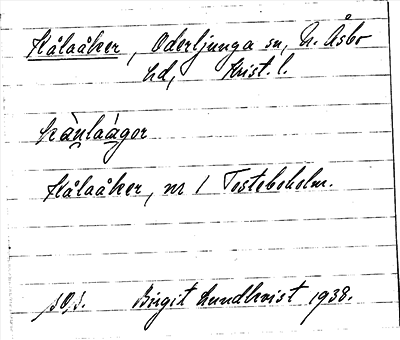 Kålaåker, Oderljunga sn, N. Åsbo
hd, Krist. l.
kàu̯laágor
Kålaåker, nr 1 Tosteboholm.
Birgit Lundkvist 1938.